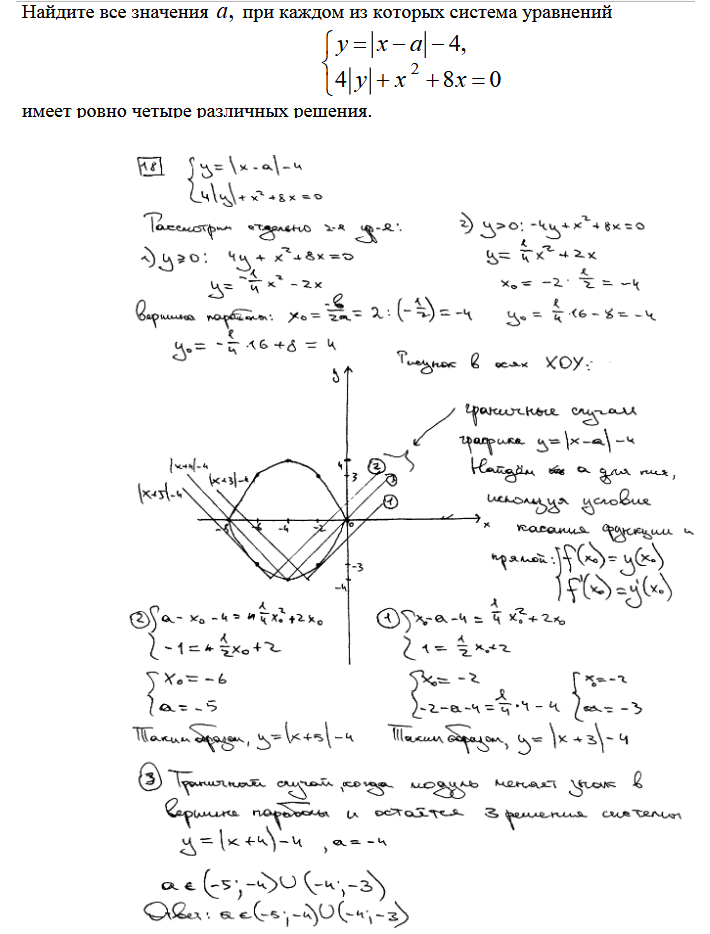 Найдите все значения a, при каждом из которых система уравнений
{ y = |x − a| − 4,
{ 4|y| + x² + 8x = 0
имеет ровно четыре различных решения.
18 { y = |x − a| − 4
{ 4|y| + x² + 8x = 0
Рассмотрим отдельно 2-е ур-е:
1) y ≥ 0: 4y + x² + 8x = 0
y = −1/4 x² − 2x
вершина параболы: x₀ = −b/2a = 2 : (−1/2) = −4
y₀ = −1/4 · 16 + 8 = 4
2) y > 0: −4y + x² + 8x = 0
y = 1/4 x² + 2x
x₀ = −2 · 1/2 = −4
y₀ = 1/4 · 16 − 8 = −4
Рисунок в осях XOY:
y
|x+4|−4
|x+3|−4
|x+5|−4
4
3
2
3
1
−8 −6 −4 −2 0 x
−3
−4
граничные случаи
графика y = |x − a| − 4
Найдём a для них,
используя условие
касания функции и
прямой: { f(x₀) = y(x₀)
{ f'(x₀) = y'(x₀)
2 { a − x₀ − 4 = 1/4 x₀² + 2x₀
{ −1 = 1/2 x₀ + 2
{ x₀ = −6
{ a = −5
Таким образом, y = |x + 5| − 4
1 { x₀ − a − 4 = 1/4 x₀² + 2x₀
{ 1 = 1/2 x₀ + 2
{ x₀ = −2
{ −2 − a − 4 = 1/4 · 4 − 4
{ x₀ = −2
{ a = −3
Таким образом, y = |x + 3| − 4
3 Граничный случай, когда модуль меняет знак в
вершине параболы и остаётся 3 решения системы
y = |x + 4| − 4 , a = −4
a ∈ (−5; −4) ∪ (−4; −3)
Ответ: a ∈ (−5; −4) ∪ (−4; −3)